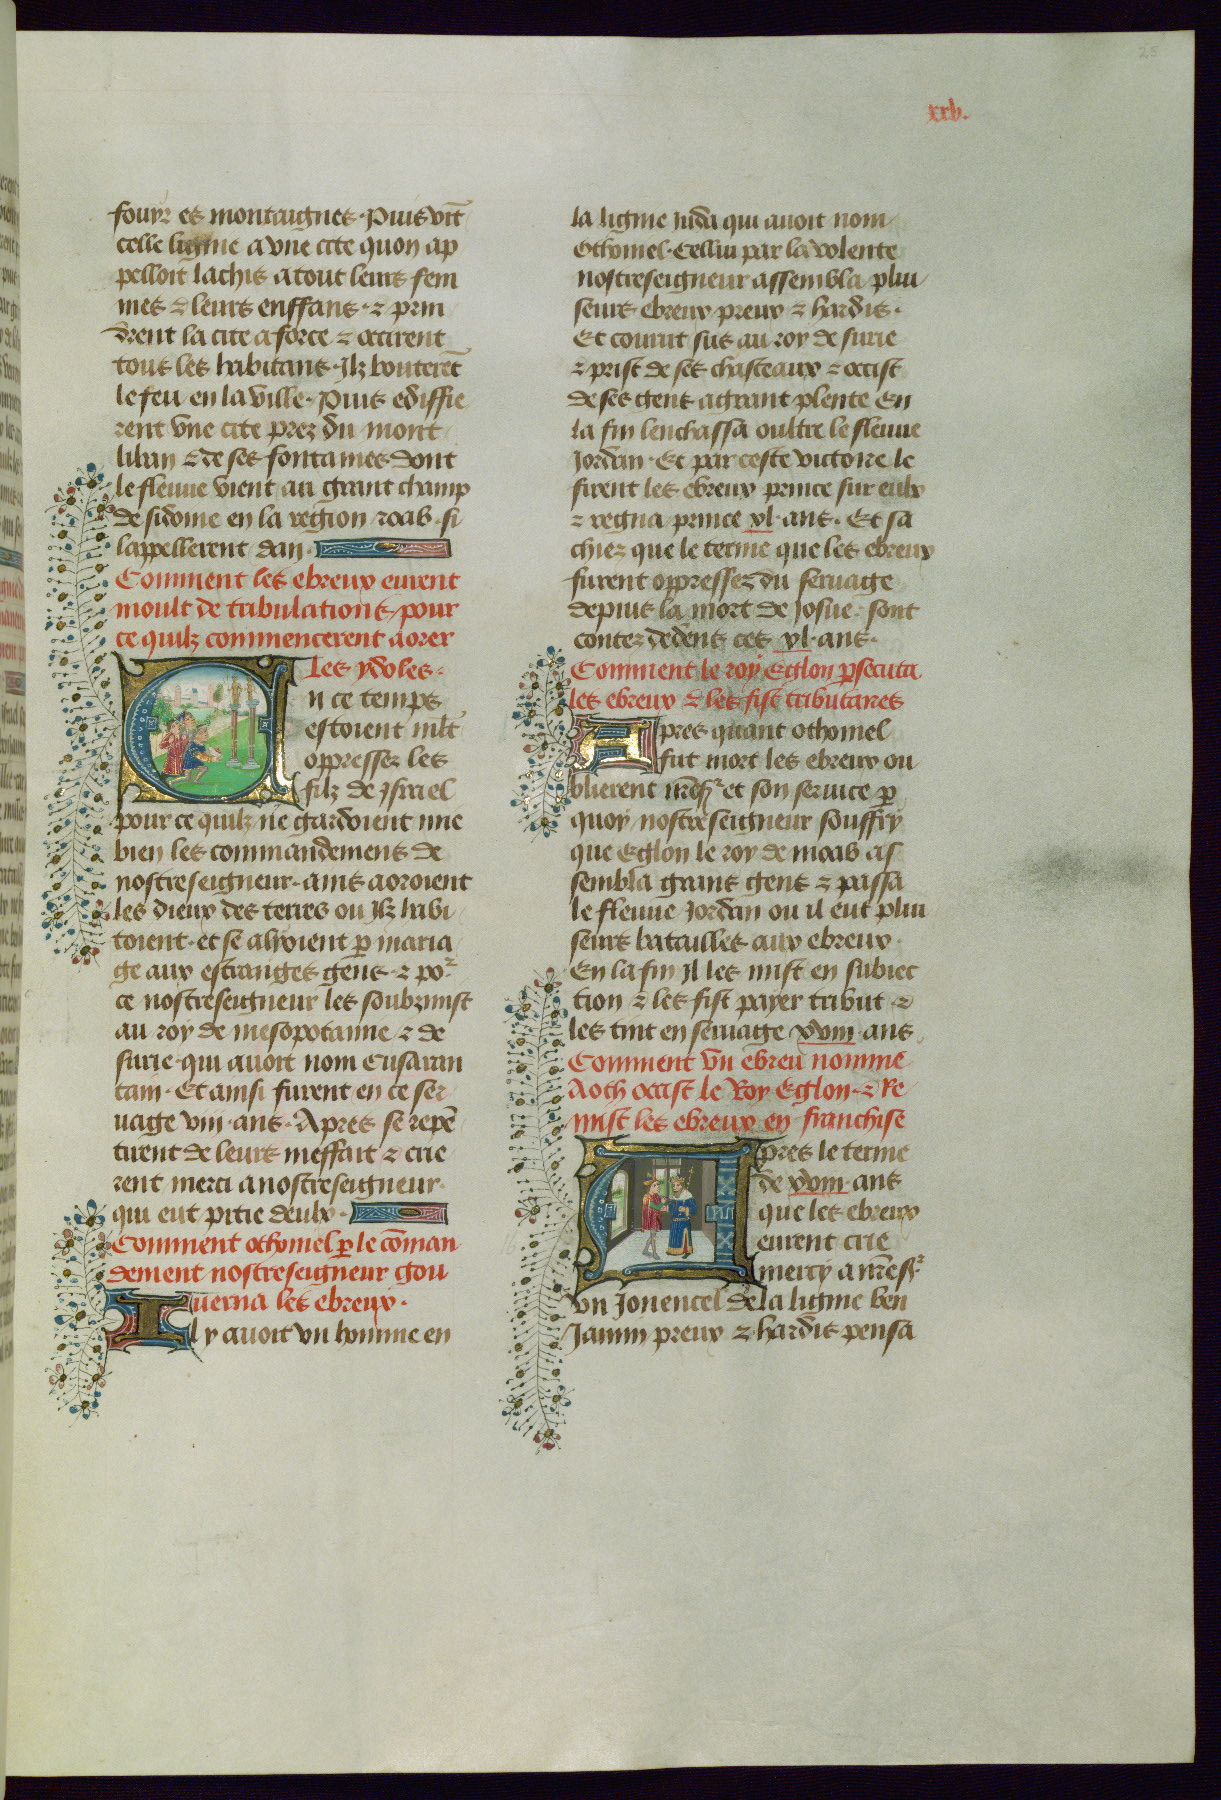 25
xxv.
fouyr es montaignes. Puis vīt
celle lignie a vne cite quon ap
pelloit lachis a tout leurs fem
mes & leurs enffans. & prin
drent la cite a force & occirent
tous les habitans. Ilz bouterēt
le feu en la ville. Puis ediffie
rent vne cite prez du mont
liban & de ses fontaines dont
le fleuue vient au grant champ
de sidonie en la region roab. si
lappellerent dan.
Comment les ebreux eurent
moult de tribulations pour
ce quilz commencerent aorer
les ydoles.
En ce temps
estoient mlt̄
oppressez les
filz de Israel
pour ce quilz ne gardoient mie
bien les commandemens de
nostreseigneur. ains aoroient
les dieux des terres ou Ilz habi
toient. et se alyoient p̄ maria
ge aux estranges gens. & por
ce nostreseigneur les soubzmist
au roy de mesopotamie & de
surie qui auoit nom Cusaran
tam. Et ainsi furent en ce ser
uage viii. ans. Apres se repē
tirent de leurs meffait & crie
rent merci a nostreseigneur.
qui eut pitie deulx.
Comment othoniel p̄ le cōman
dement nostreseigneur gou
uerna les ebreux.
Il y auoit vn homme en
la lignie Iuda qui auoit nom
Othoniel. Cellui par la volente
nostreseigneur assembla plui
seurs ebreux preux & hardis.
Et courut sus au roy de surie
& prist de ses chasteaux & occist
de ses gens a grant plente En
la fin lenchassa oultre le fleuue
Jordan. Et par ceste victoire le
firent les ebreux prince sur eulx
& regna prince xl. ans. Et sa
chiez que le terme que les ebreux
furent oppressez du seruage
depuis la mort de Josue. sont
contez dedens ces xl. ans.
Comment le roy Eglon p̄secuta
les ebreux & les fist tributaires
Apres quant othoniel
fut mort les ebreux ou
blierent nr̄es̄r et son seruice p̄
quoy nostreseigneur souffry
que Eglon le roy de moab as
sembla grans gens & passa
le fleuue Jordan ou il eut plui
seurs batailles aux ebreux.
En la fin Il les mist en subiec
tion & les fist payer tribut &
les tint en seruage xviii. ans
Comment vn ebreu nomme
Aoth occist le Roy Eglon. & Re
mist les ebreux en franchise
Apres le terme
de xviii. ans
que les ebreux
eurent crie
mercy a nr̄es̄r
vn Jouencel de la lignie ben
Jamin preux & hardis pensa